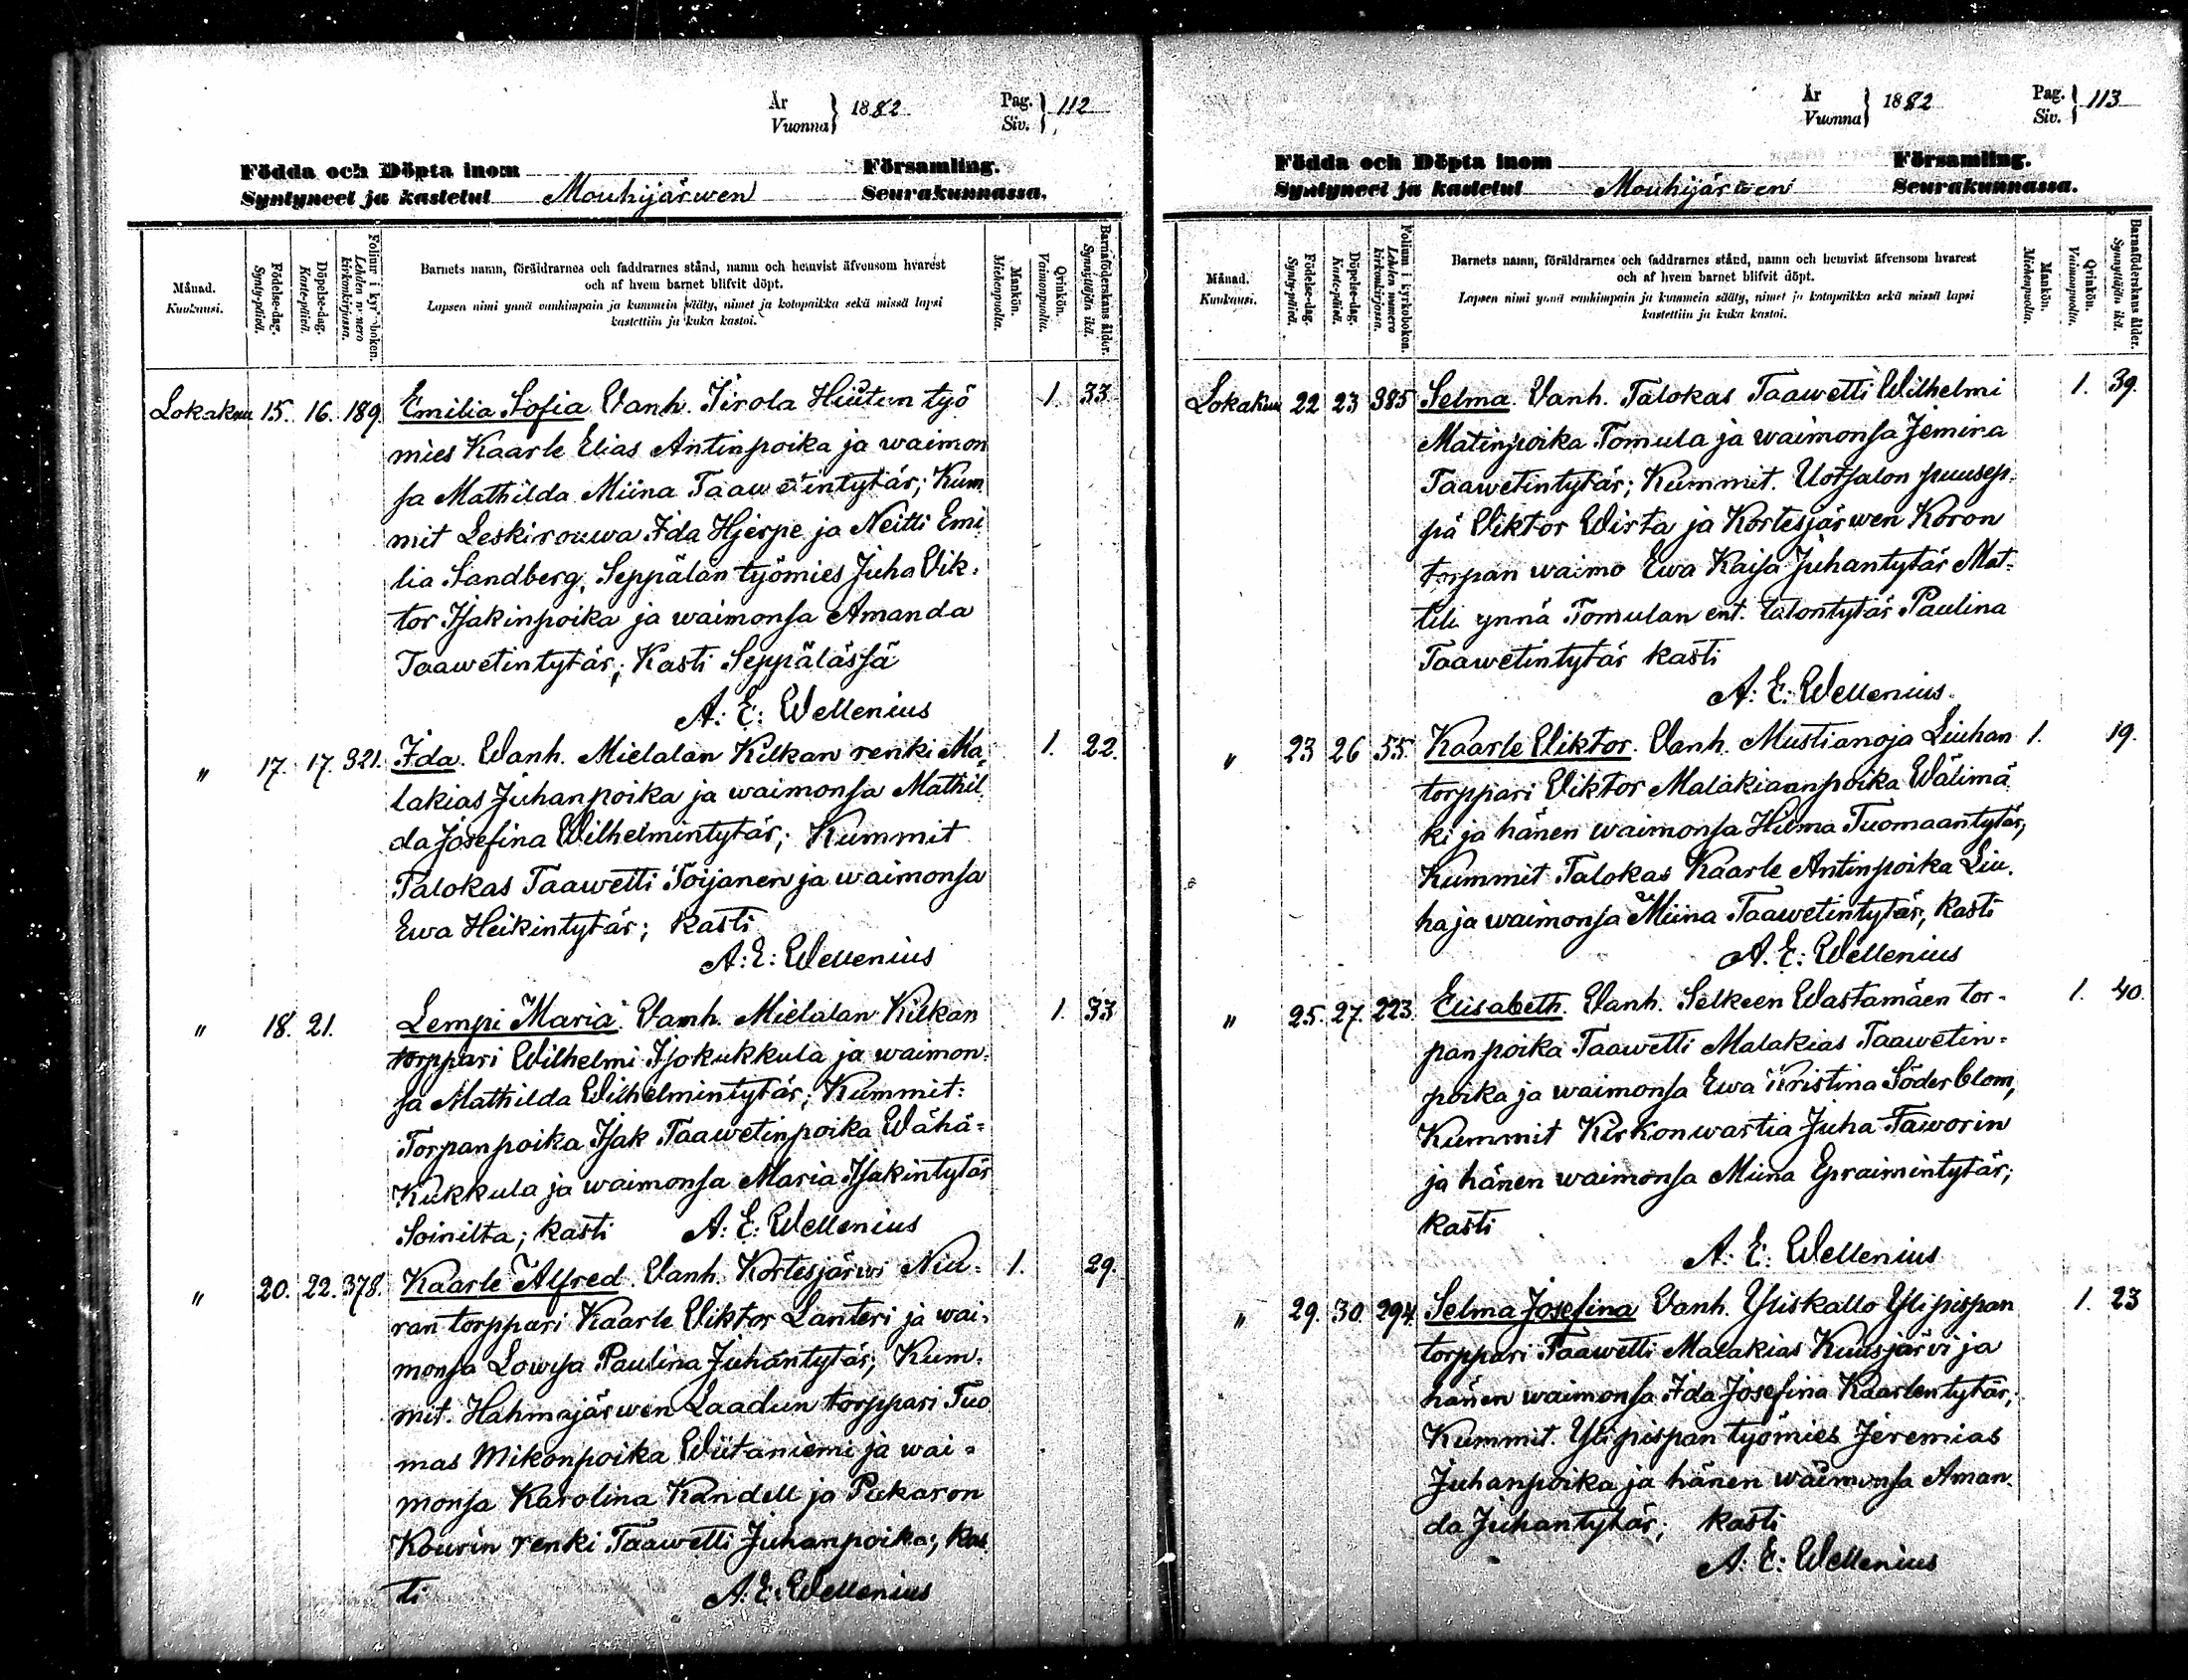 År
Vuonna } 1882 Pag.
Siv. } 112
Födda och Döpta inom Församling.
Syntyneet ja kastetut Mouhijärwen Seurakunnassa.
Månad.
Kuukausi.
Födelse-dag.
Synty-päivä.
Döpelse-dag.
Kaste-päivä.
Folium i kyrkoboken.
Lehden numero kirkonkirjassa.
Barnets namn, föräldrarnes och faddrarnes stånd, namn och hemvist äfvensom hvarest
och af hvem barnet blifvit döpt.
Lapsen nimi ynnä vanhimpain ja kummein sääty, nimet ja kotopaikka sekä missä lapsi
kastettiin ja kuka kastoi.
Mankön.
Miehenpuolta.
Qvinkön.
Vaimonpuolta.
Barnaföderskans ålder.
Synnyttäjän ikä.
Lokakuu 15. 16. 189. Emilia Sofia. Vanh. Tirola työ 1. 33
mies Kaarle Elias Antinpoika ja waimon
sa Mathilda Miina Taawetintytär; Kum
mit Leskirouwa Ida Hjerpe ja Neitti Emi
lia Sandberg, Seppälän työmies Juha Vik-
tor Isakinpoika ja waimonsa Amanda
Taawetintytär; Kasti Seppälässä
A: E: Wellenius
" 17. 17. 321. Ida. Vanh. Mielalan Kilkan renki Ma- 1. 22.
lakias Juhanpoika ja waimonsa Mathil-
da Josefina Wilhelmintytär; Kummit
Talokas Taawetti Toijanen ja waimonsa
Ewa Heikintytär; kasti
A: E: Wellenius
" 18. 21. Lempi Maria. Vanh. Mielalan Kilkan 1. 33
torppari Wilhelmi Isokukkula ja waimon-
sa Mathilda Wilhelmintytär; Kummit:
Torpanpoika Isak Taawetinpoika Wähä-
Kukkula ja waimonsa Maria Isakintytär
Soinilta; kasti A: E: Wellenius
" 20. 22. 378. Kaarle Alfred. Vanh. Kortesjärwi Niu- 1. 29.
ran torppari Kaarle Viktor Lanteri ja wai-
monsa Lowisa Paulina Juhantytär; Kum-
mit. Hahmajärwen Laadun torppari Tuo
mas Mikonpoika Wiitaniemi ja wai-
monsa Karolina Kandell ja Pukaron
Kourin renki Taawetti Juhanpoika; kas
ti A: E: Wellenius
År
Vuonna } 1882 Pag.
Siv. } 113
Födda och Döpta inom Församling.
Syntyneet ja kastetut Mouhijärwen Seurakunnassa.
Månad.
Kuukausi.
Födelse-dag.
Synty-päivä.
Döpelse-dag.
Kaste-päivä.
Folium i kyrkoboken.
Lehden numero kirkonkirjassa.
Barnets namn, föräldrarnes och faddrarnes stånd, namn och hemvist äfvensom hvarest
och af hvem barnet blifvit döpt.
Lapsen nimi ynnä vanhimpain ja kummein sääty, nimet ja kotopaikka sekä missä lapsi
kastettiin ja kuka kastoi.
Mankön.
Miehenpuolta.
Qvinkön.
Vaimonpuolta.
Barnaföderskans ålder.
Synnyttäjän ikä.
Lokakuu 22 23 385 Selma. Vanh. Talokas Taawetti Wilhelmi 1. 39.
Matinpoika Tomula ja waimonsa Jemina
Taawetintytär; Kummit. Uotsalon puusep-
pä Viktor Wirta ja Kortesjärwen Koron
torpan waimo Ewa Kaisa Juhantytär Mat-
tili ynnä Tomulan ent. talontytär Paulina
Taawetintytär kasti
A: E: Wellenius.
" 23 26 55. Kaarle Viktor. Vanh. Mustianoja Liuhan 1. 19.
torppari Viktor Malakiaanpoika Wälimä
ki ja hänen waimonsa Hilma Tuomaantytär;
Kummit Talokas Kaarle Antinpoika Liu-
ha ja waimonsa Miina Taawetintytär, kasti
A. E: Wellenius
" 25. 27. 223. Elisabeth. Vanh. Selkeen Wastamäen tor- 1. 40.
panpoika Taawetti Malakias Taawetin-
poika ja waimonsa Ewa Kristina Söderblom,
Kummit Kirkonwartia Juha Taworin
ja hänen waimonsa Miina Epraimintytär;
kasti
A: E: Wellenius
" 29. 30. 294. Selma Josefina Vanh. Yliskallo Ylipispan 1. 23
torppari Taawetti Malakias Kuusjärvi ja
hänen waimonsa Ida Josefina Kaarlentytär;
Kummit. Ylipispan työmies Jeremias
Juhanpoika ja hänen waimonsa Aman-
da Juhantytär; kasti
A: E: Wellenius